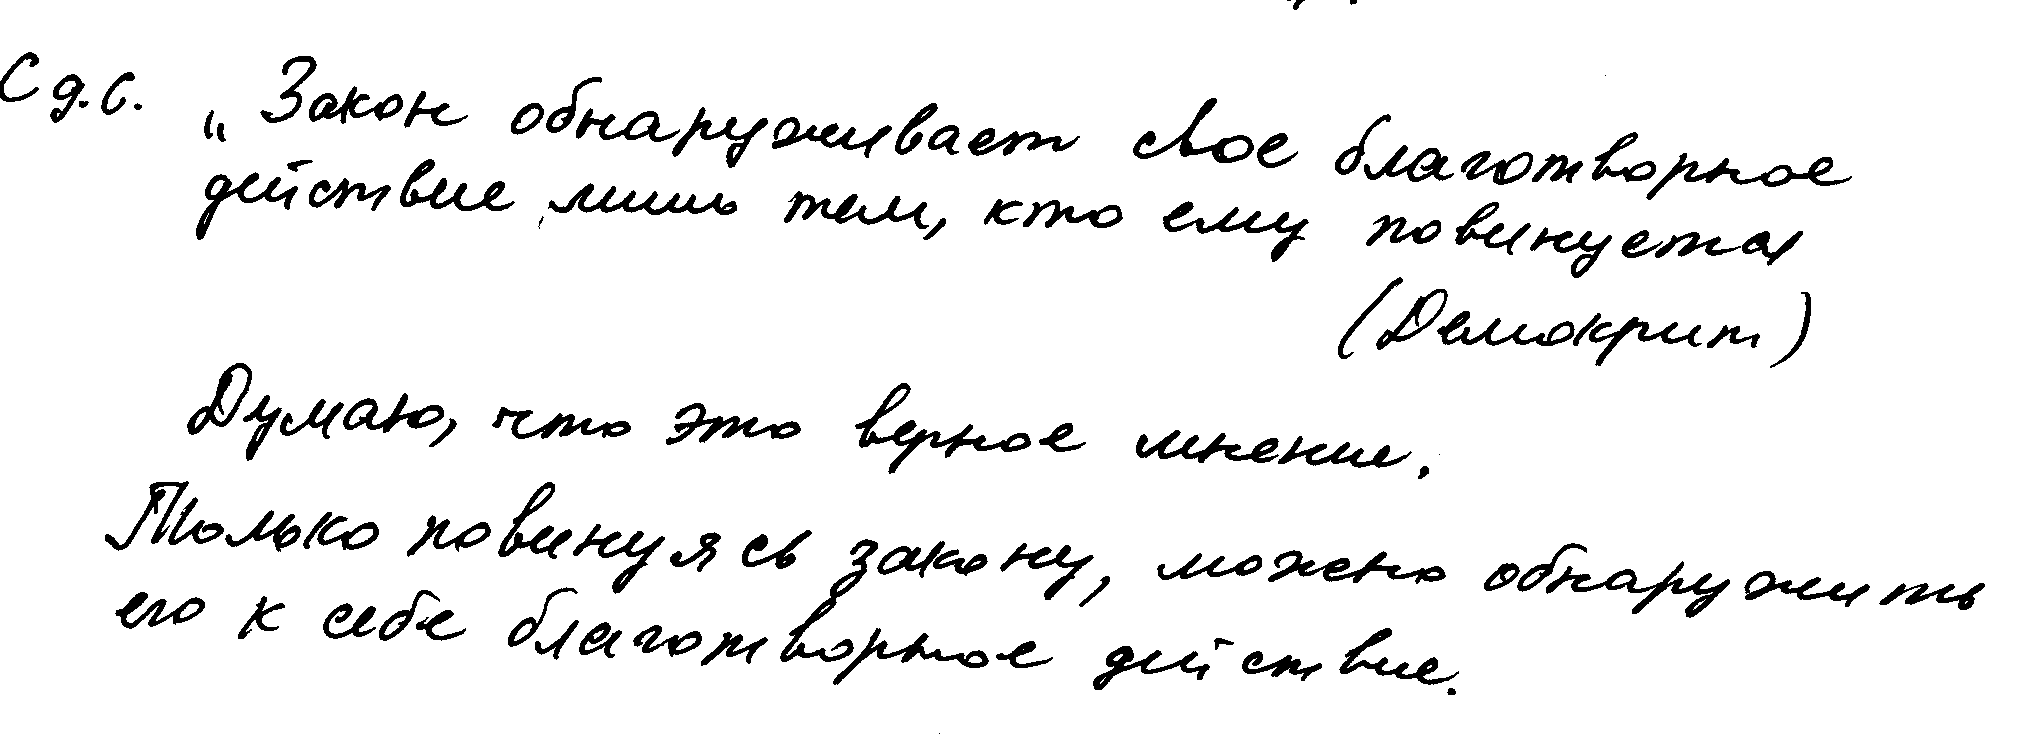 С д.с. „Закон обнаруживает свое благотворное
действие лишь тем, кто ему повинуется
(Демокрит)
Думаю, что это верное мнение.
Только повинуясь закону, можно обнаружить
его к себе благотворное действие.